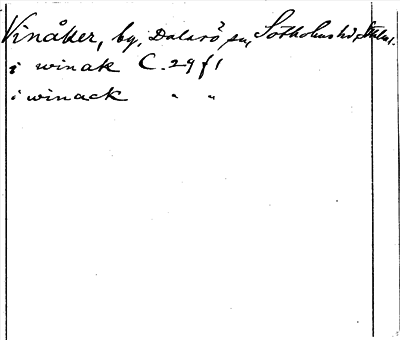 Vinåker, by, Dalarö sn, Sotholms hd, Sthlm.
i winak C. 29 f 1
i winack " "